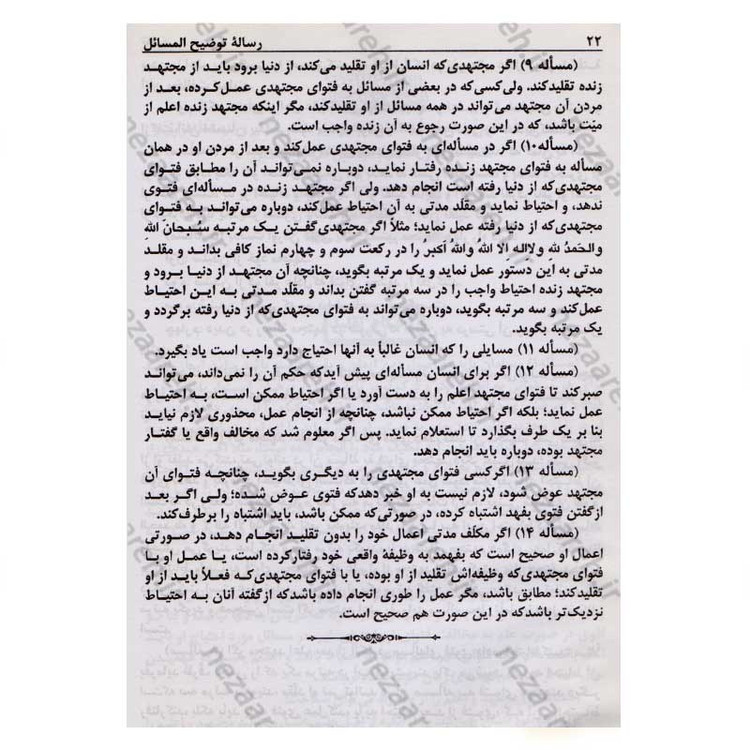 ۲۲ رسالۀ توضیح المسائل
(مسأله ۹) اگر مجتهدی‌که انسان از او تقلید می‌کند، از دنیا برود باید از مجتهد
زنده تقلیدکند. ولی‌کسی‌که در بعضی از مسائل به فتوای مجتهدی عمل‌کرده، بعد از
مردن آن مجتهد می‌تواند در همه مسائل از او تقلیدکند، مگر اینکه مجتهد زنده اعلم از
میّت باشد، که در این صورت رجوع به آن زنده واجب است.
(مسأله۱۰) اگر در مسأله‌ای به فتوای مجتهدی عمل‌کند و بعد از مردن او در همان
مسأله به فتوای مجتهد زنده رفتار نماید، دوباره نمی‌تواند آن را مطابق فتوای
مجتهدی‌که از دنیا رفته است انجام دهد. ولی اگر مجتهد زنده در مسأله‌ای فتوی
ندهد، و احتیاط نماید و مقلّد مدتی به آن احتیاط عمل‌کند، دوباره می‌تواند به فتوای
مجتهدی‌که از دنیا رفته عمل نماید؛ مثلاً اگر مجتهدی‌گفتن یک مرتبه سُبحانَ اللهِ
والحَمدُ للهِ ولااله الا اللهُ واللهُ اَکبرُ را در رکعت سوم و چهارم نماز کافی بداند و مقلد
مدتی به این دستور عمل نماید و یک مرتبه بگوید، چنانچه آن مجتهد از دنیا برود و
مجتهد زنده احتیاط واجب را در سه مرتبه گفتن بداند و مقلّد مدتی به این احتیاط
عمل‌کند و سه مرتبه بگوید، دوباره می‌تواند به فتوای مجتهدی‌که از دنیا رفته برگردد و
یک مرتبه بگوید.
(مسأله ۱۱) مسایلی را که انسان غالباً به آنها احتیاج دارد واجب است یاد بگیرد.
(مسأله ۱۲) اگر برای انسان مسأله‌ای پیش آیدکه حکم آن را نمی‌داند، می‌تواند
صبرکند تا فتوای مجتهد اعلم را به دست آورد یا اگر احتیاط ممکن است، به احتیاط
عمل نماید؛ بلکه اگر احتیاط ممکن نباشد، چنانچه از انجام عمل، محذوری لازم نیاید
بنا بر یک طرف بگذارد تا استعلام نماید. پس اگر معلوم شد که مخالف واقع یا گفتار
مجتهد بوده، دوباره باید انجام دهد.
(مسأله ۱۳) اگرکسی فتوای مجتهدی را به دیگری بگوید، چنانچه فتوای آن
مجتهد عوض شود، لازم نیست به او خبر دهدکه فتوی عوض شده؛ ولی اگر بعد
ازگفتن فتوی بفهد اشتباه کرده، در صورتی‌که ممکن باشد، باید اشتباه را برطرف‌کند.
(مسأله ۱۴) اگر مکلّف مدتی اعمال خود را بدون تقلید انجام دهد، در صورتی
اعمال او صحیح است که بفهمد به وظیفۀ واقعی خود رفتارکرده است، یا عمل او با
فتوای مجتهدی‌که وظیفه‌اش تقلید از او بوده، یا با فتوای مجتهدی‌که فعلاً باید از او
تقلیدکند؛ مطابق باشد، مگر عمل را طوری انجام داده باشدکه ازگفته آنان به احتیاط
نزدیک‌تر باشدکه در این صورت هم صحیح است.